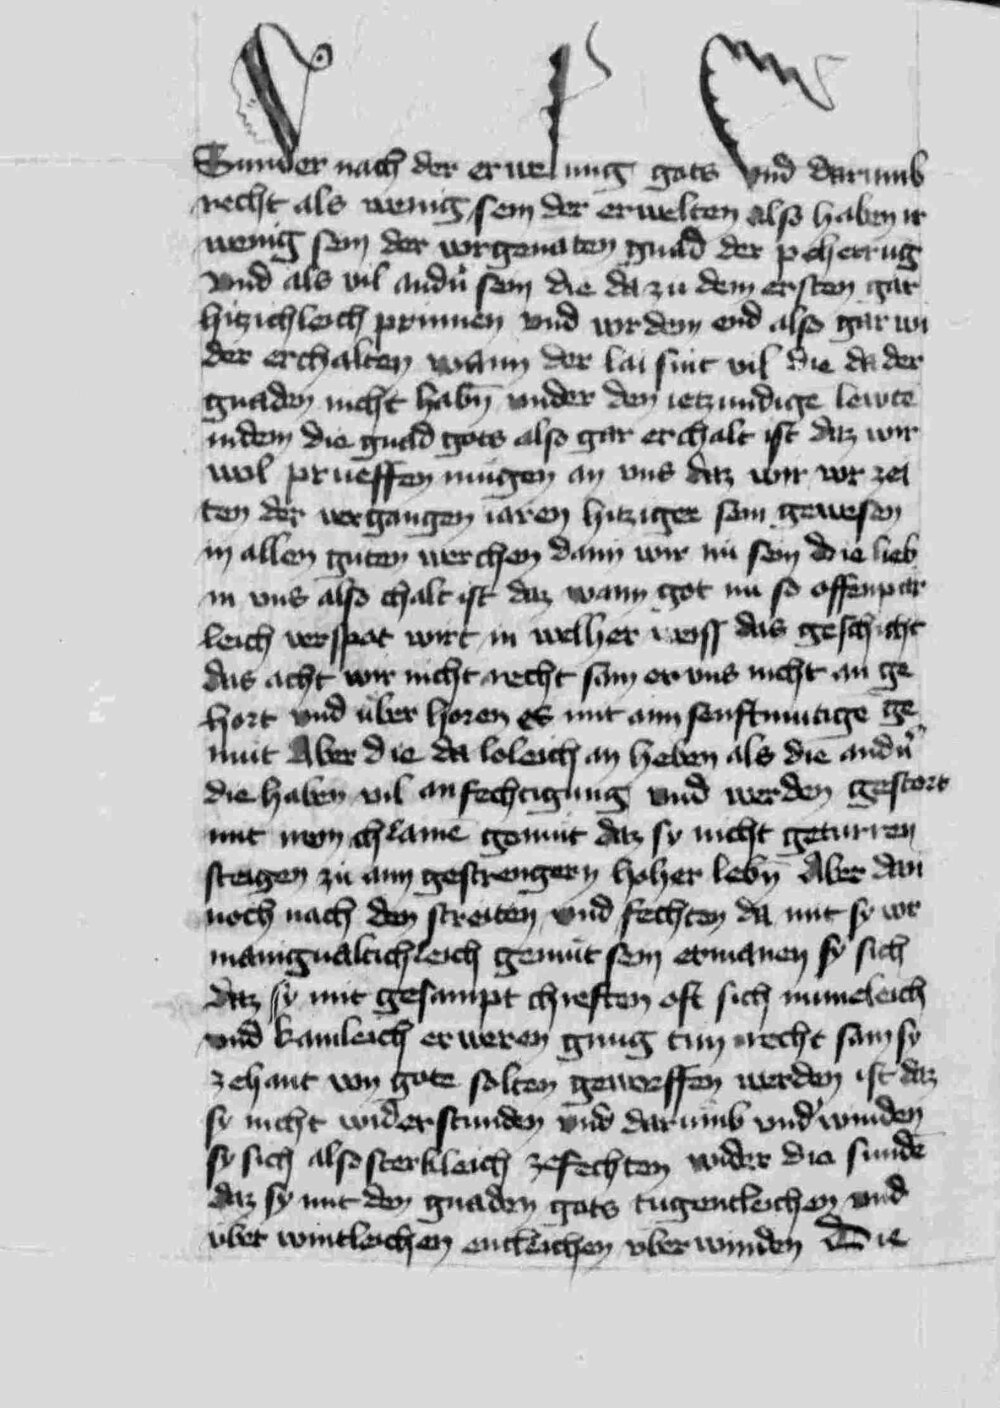 Sunder nach der erwelung gots vnd darumb
recht als wenig sein der erwelten also haben ir
wenig sein der vorgenaten gnad der peherrūg
vnd als vil andr̄ sein die da zu dem ersten gar
hiczichleich prinnen vnd vor dem end also gar wi
der erchalten wann der lai sint vil die da der
gnaden nicht habn̄ vnder den ietzundigē lewte
in dem die gnad gots also gar erchalt ist daz wir
wol prueffen mugen an vns daz wir vor zei
ten der vergangen iaren hitziger sein gewesen
in allen guten werchen dann wir nu sein die lieb
in vns also chalt ist daz wann got nu so offenpar
leich verspot wirt in welher weiss das geschicht
das acht wir nicht recht sam er vns nicht an ge
hort vnd uber horen es mit aim senftmutigē ge
müt Aber die da loleich an heben als die andn̄
die haben vil anfechtigung vnd werden gestort
mit chlaine gemüt daz sy nicht geturren
steigen zu aim gestrengern hoher lebn̄ Aber dan
noch nach den streiten vnd fechten da mit sy vor
manigualtichleich gemüt sein ermanen sy sich
daz sy mit gesampt chreften oft sich
vnd erweren gnug tun recht sam sy
zehant von gote solten geworffen werden ist daz
sy nicht widerstunden vnd darumb vnd'winden
sy sich also sterkleich ze fechten wider die sunde
daz sy mit den gnaden gots tugentleichen vnd
vber wintleichen entleichen vberwinden Die